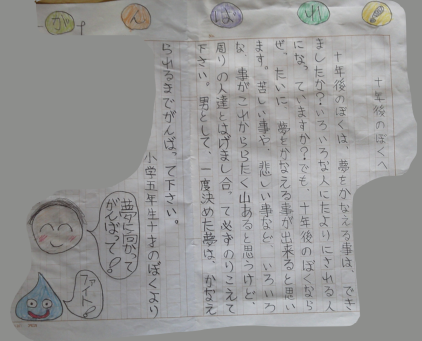 がんばれ!
十年後のぼくへ
十年後のぼくは、夢をかなえる事は、でき
ましたか?いろいろな人にたよりにされる人
になっていますか?でも、十年後のぼくなら
ぜったいに夢をかなえる事が出来ると思い
ます。苦しい事や、悲しい事など、いろいろ
な事がこれかららたく山あると思うけど、
周りの人達とはげまし合って必ずのりこえて
下さい。男として、一度決めた夢は、かなえ
られるまでがんばって下さい。
小学五年生十才のぼくより
夢に向かって
がんばって!
ファイト!